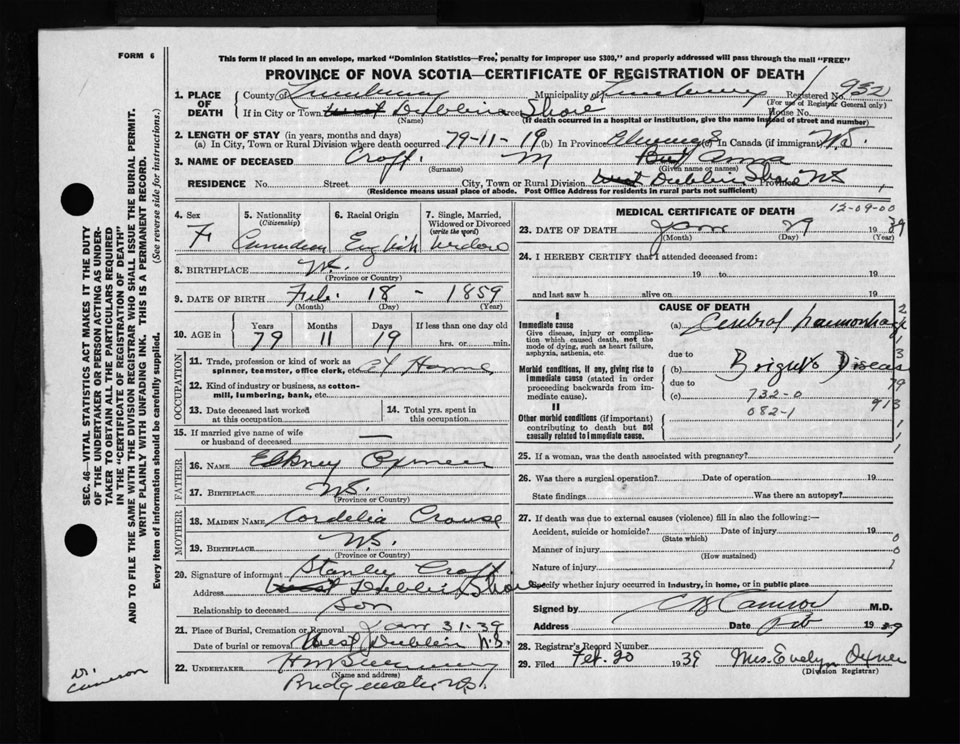 FORM 6
This form if placed in an envelope, marked "Dominion Statistics—Free, penalty for improper use $300," and properly addressed will pass through the mail "FREE"
PROVINCE OF NOVA SCOTIA—CERTIFICATE OF REGISTRATION OF DEATH
SEC. 46—VITAL STATISTICS ACT MAKES IT THE DUTY
OF THE UNDERTAKER OR PERSON ACTING AS UNDER-
TAKER TO OBTAIN ALL THE PARTICULARS REQUIRED
IN THE "CERTIFICATE OF REGISTRATION OF DEATH"
AND TO FILE THE SAME WITH THE DIVISION REGISTRAR WHO SHALL ISSUE THE BURIAL PERMIT.
WRITE PLAINLY WITH UNFADING INK. THIS IS A PERMANENT RECORD.
Every item of information should be carefully supplied. (See reverse side for instructions.)
1. PLACE OF DEATH County of Lunenburg Municipality of Lunenburg Registered No. 932
(For use of Registrar General only)
If in City or Town West Dublin Shore Street House No.
(Name) (If death occurred in a hospital or institution, give the name instead of street and number)
2. LENGTH OF STAY (in years, months and days)
(a) In City, Town or Rural Division where death occurred 79-11-19 (b) In Province (c) In Canada (if immigrant) NS.
3. NAME OF DECEASED Croft M Anna
(Surname) (Given name or names)
RESIDENCE No. Street City, Town or Rural Division West Dublin Shore Province NS
(Residence means usual place of abode. Post Office Address for Residents in rural parts not sufficient)
4. Sex 5. Nationality (Citizenship) 6. Racial Origin 7. Single, Married, Widowed or Divorced (write the word)
F Canadian English Widow
8. BIRTHPLACE NS.
(Province or Country)
9. DATE OF BIRTH Feb. 18 - 1859
(Month) (Day) (Year)
10. AGE in Years Months Days If less than one day old
79 11 19 hrs. or min.
OCCUPATION
11. Trade, profession or kind of work as spinner, teamster, office clerk, etc. at Home
12. Kind of industry or business, as cotton-mill, lumbering, bank, etc.
13. Date deceased last worked at this occupation 14. Total yrs. spent in this occupation
15. If married give name of wife or husband of deceased —
FATHER
16. Name Oxner
17. Birthplace NS.
(Province or Country)
MOTHER
18. Maiden Name Cordelia Crouse
19. Birthplace NS.
(Province or Country)
20. Signature of informant Stanley Croft
Address West Dublin Shore
Relationship to deceased Son
21. Place of Burial, Cremation or Removal Jan 31-39
Date of burial or removal West Dublin N.S.
22. Undertaker
(Name and address)
Bridgewater NS.
Dr. Cameron
MEDICAL CERTIFICATE OF DEATH 12-09-00
23. DATE OF DEATH Jan 29 1939
(Month) (Day) (Year)
24. I HEREBY CERTIFY that I attended deceased from:
19 to 19
and last saw h alive on 19
CAUSE OF DEATH
I
Immediate cause
Give disease, injury or complication which caused death, not the mode of dying, such as heart failure, asphyxia, asthenia, etc
(a) Cerebral haemorrhage
due to
Morbid conditions, if any, giving rise to immediate cause (stated in order proceeding backwards from immediate cause).
(b) Bright's Disease
due to
(c) 732-0
082-1
79
913
II
Other morbid conditions (if important) contributing to death but not causally related to immediate cause.
25. If a woman, was the death associated with pregnancy?
26. Was there a surgical operation? Date of operation 19
State findings Was there an autopsy?
27. If death was due to external causes (violence) fill in also the following:—
Accident, suicide or homicide? Date of injury 19
(State which)
Manner of injury
(How sustained)
Nature of injury
Specify whether injury occurred in industry, in home, or in public place
Signed by Cameron M.D.
Address Date Feb 1939
28. Registrar's Record Number
29. Filed Feb. 20 1939 Mrs. Evelyn Oxner
(Division Registrar)